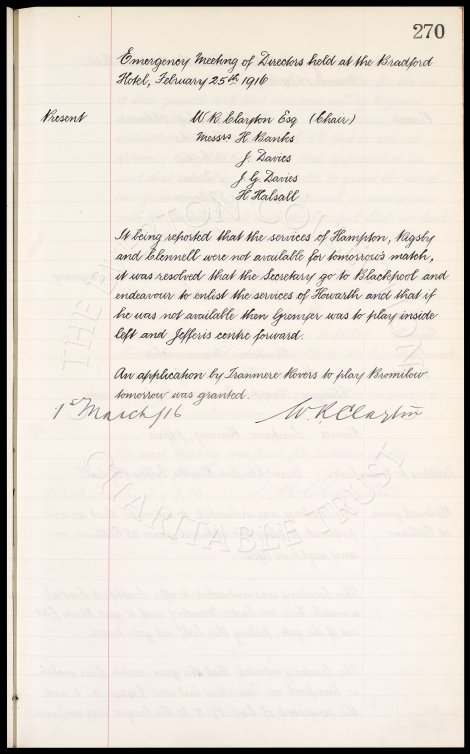 270
Emergency Meeting of Directors held at the Bradford
Hotel, February 25th 1916
Present
W. R. Clayton Esq (Chair)
Messrs H. Banks
J. Davies
J. G. Davies
H Halsall
It being reported that the services of Hampton, Rigsby
and Clennell were not available for tomorrow's match,
it was resolved that the Secretary go to Blackpool and
endeavour to enlist the services of Howarth and that if
he was not available then Grenyer was to play inside
left and Jefferis centre forward.
An application by Tranmere Rovers to play Bromilow
tomorrow was granted.
1st March/16 W R Clayton
CHARITABLE TRUST